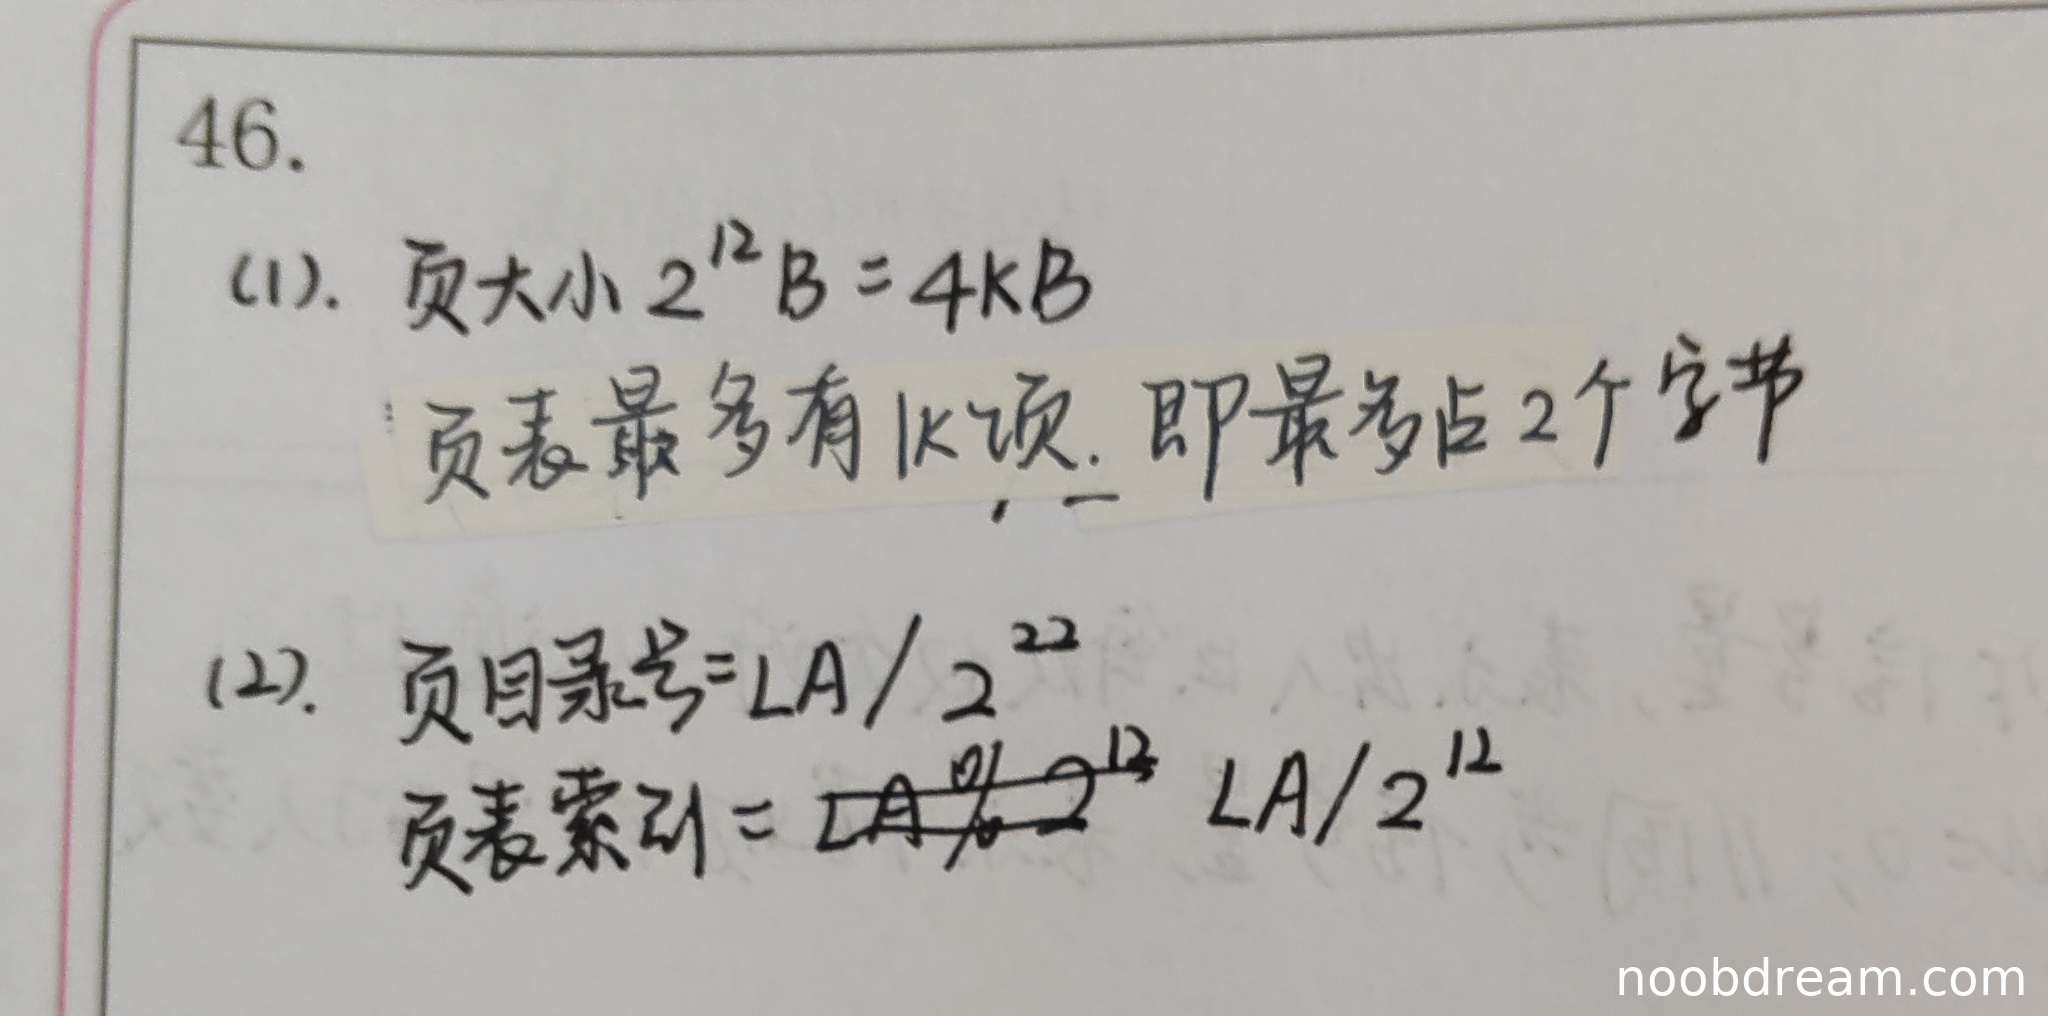 46.
(1). 页大小 2^12 B = 4KB
页表最多有1K项. 即最多占2个字节
(2). 页目录号=LA/2^22
页表索引= LA%2^12 LA/2^12
noobdream.com